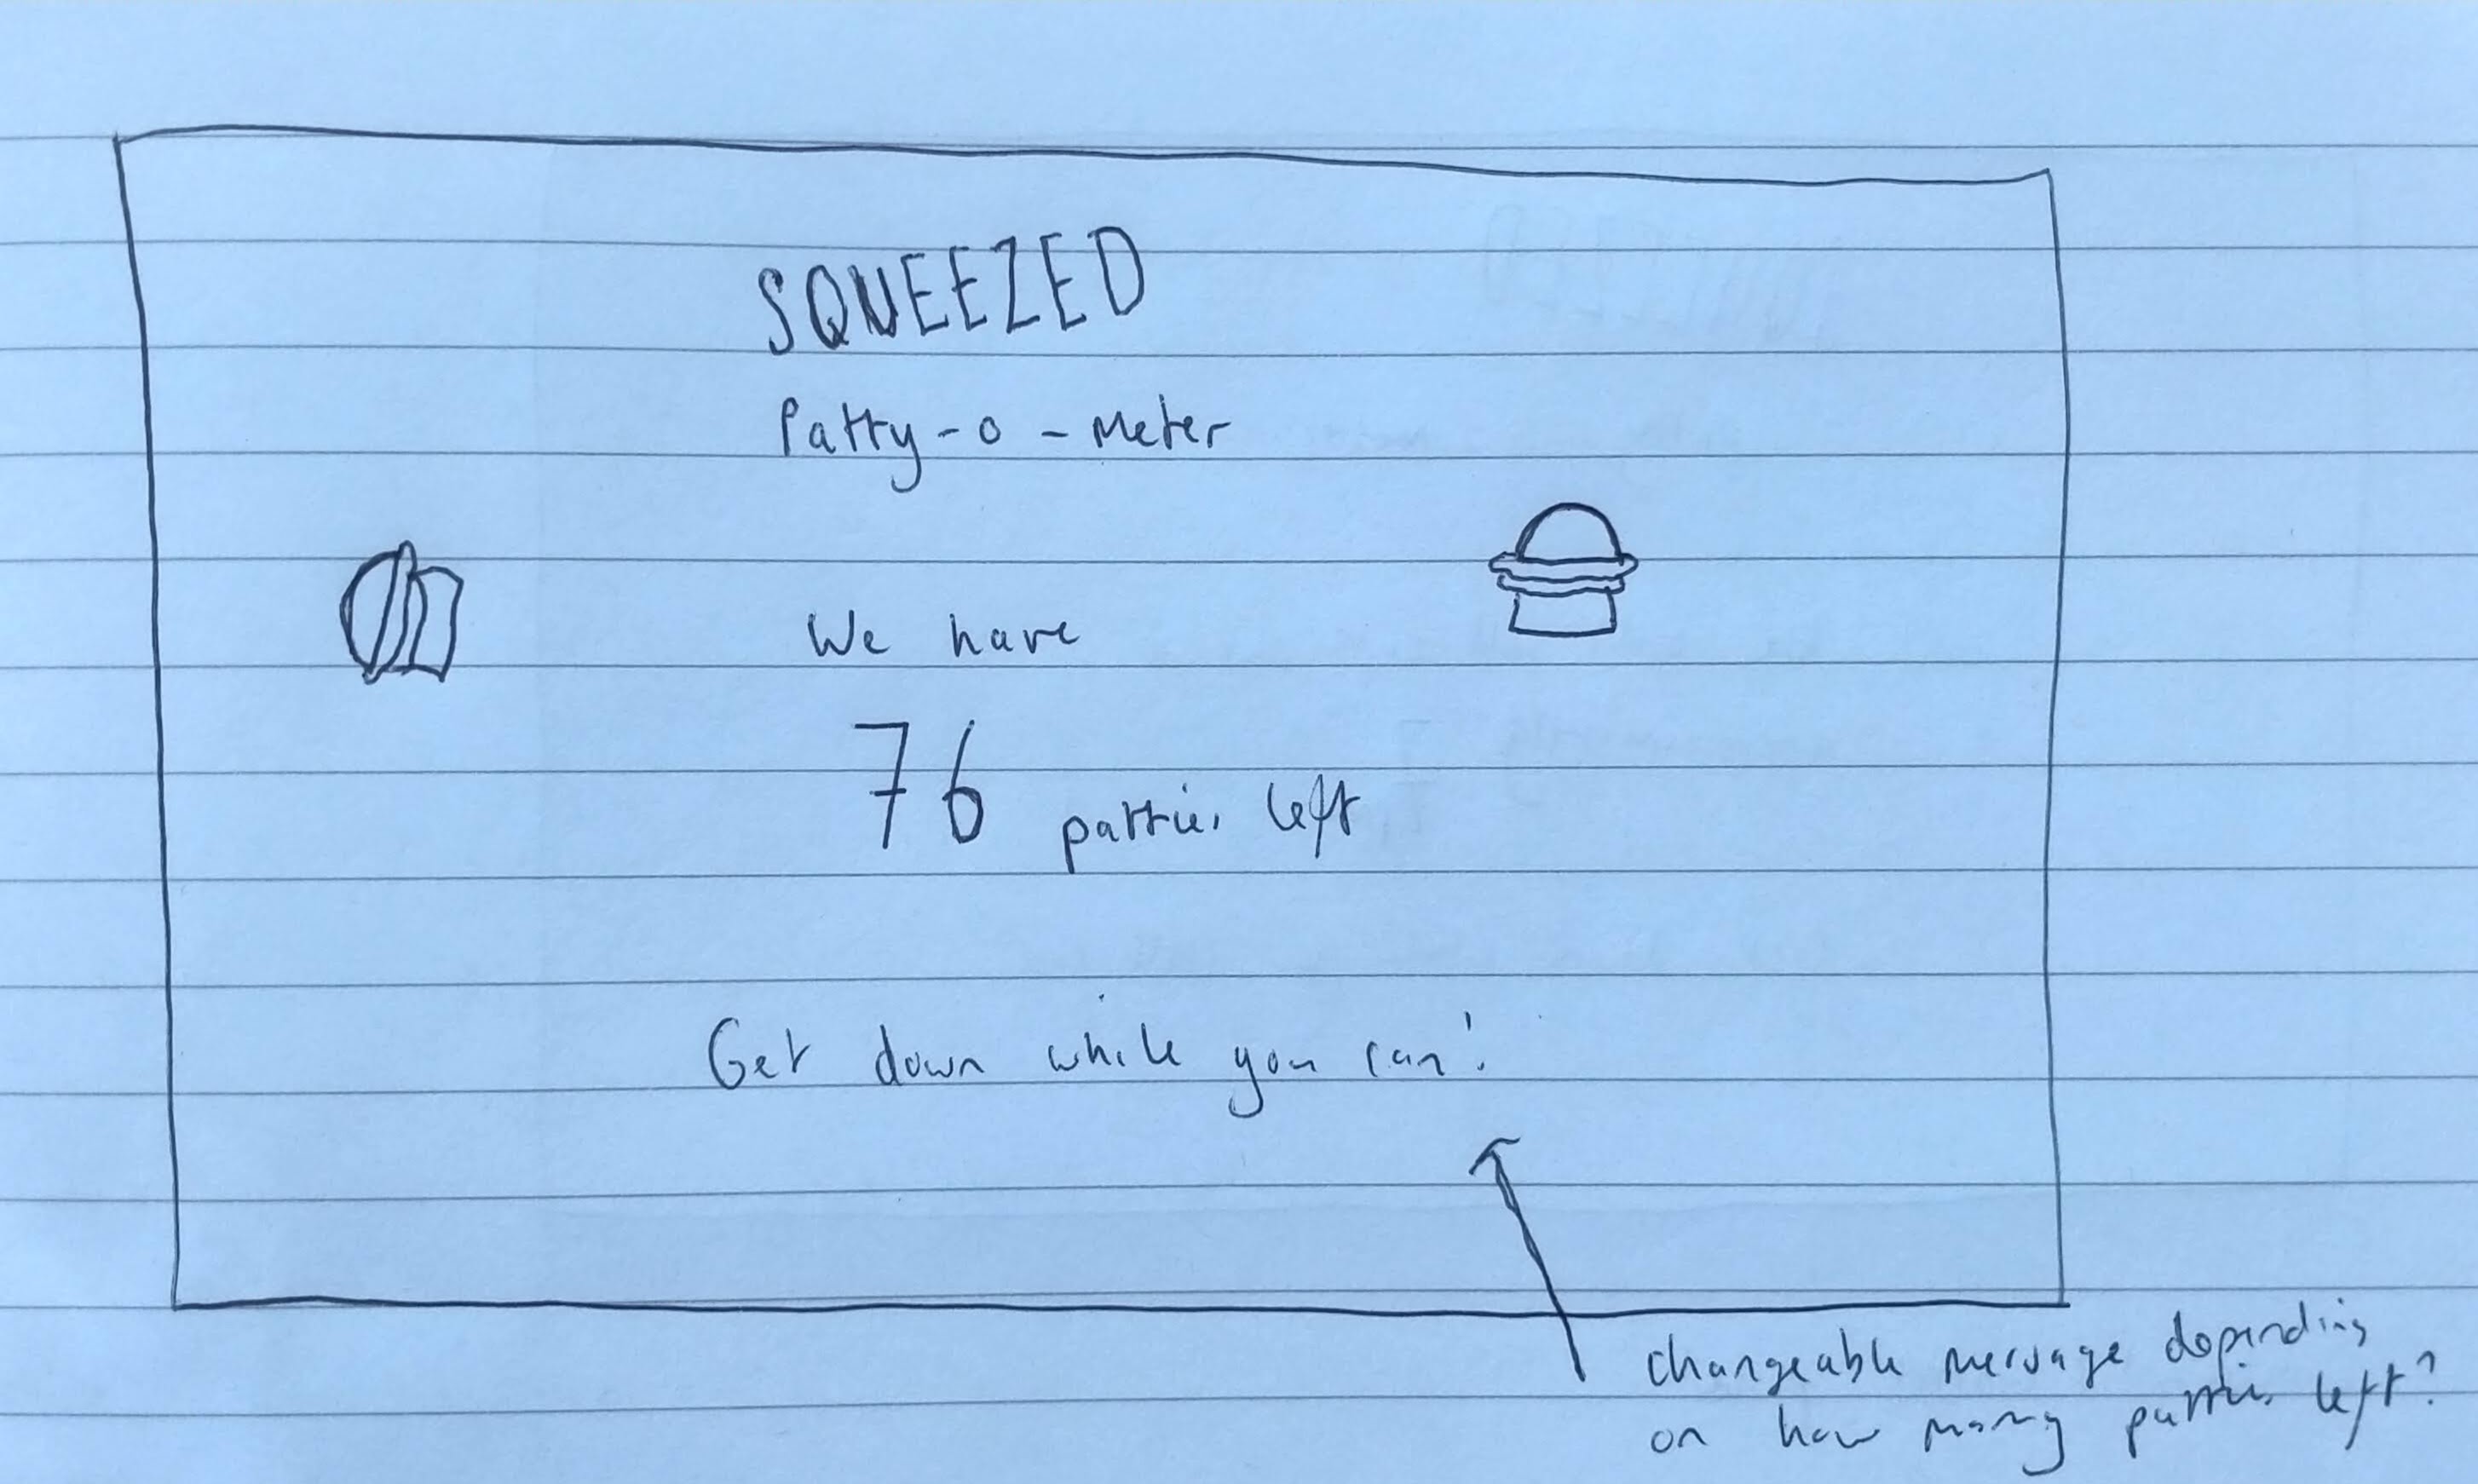 SQUEEZED
Patty-o-meter
We have
76 patties left
Get down while you can!
changeable message depending
on how many patties left?